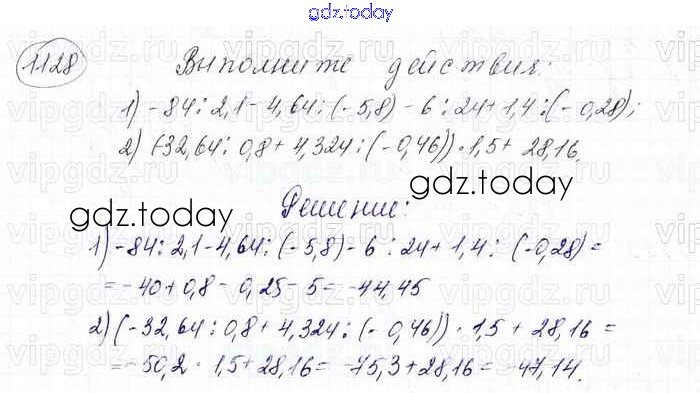 gdz.today
1128
Выполните действия:
1) -84:2,1-4,64:(-5,8)-6:24+1,4:(-0,28);
2) (-32,64:0,8+4,324:(-0,46))·1,5+28,16.
gdz.today
gdz.today
Решение:
1) -84:2,1-4,64:(-5,8)-6:24+1,4:(-0,28)=
=-40+0,8-0,25-5=-44,45
2) (-32,64:0,8+4,324:(-0,46))·1,5+28,16=
=-50,2·1,5+28,16=-75,3+28,16=-47,14.